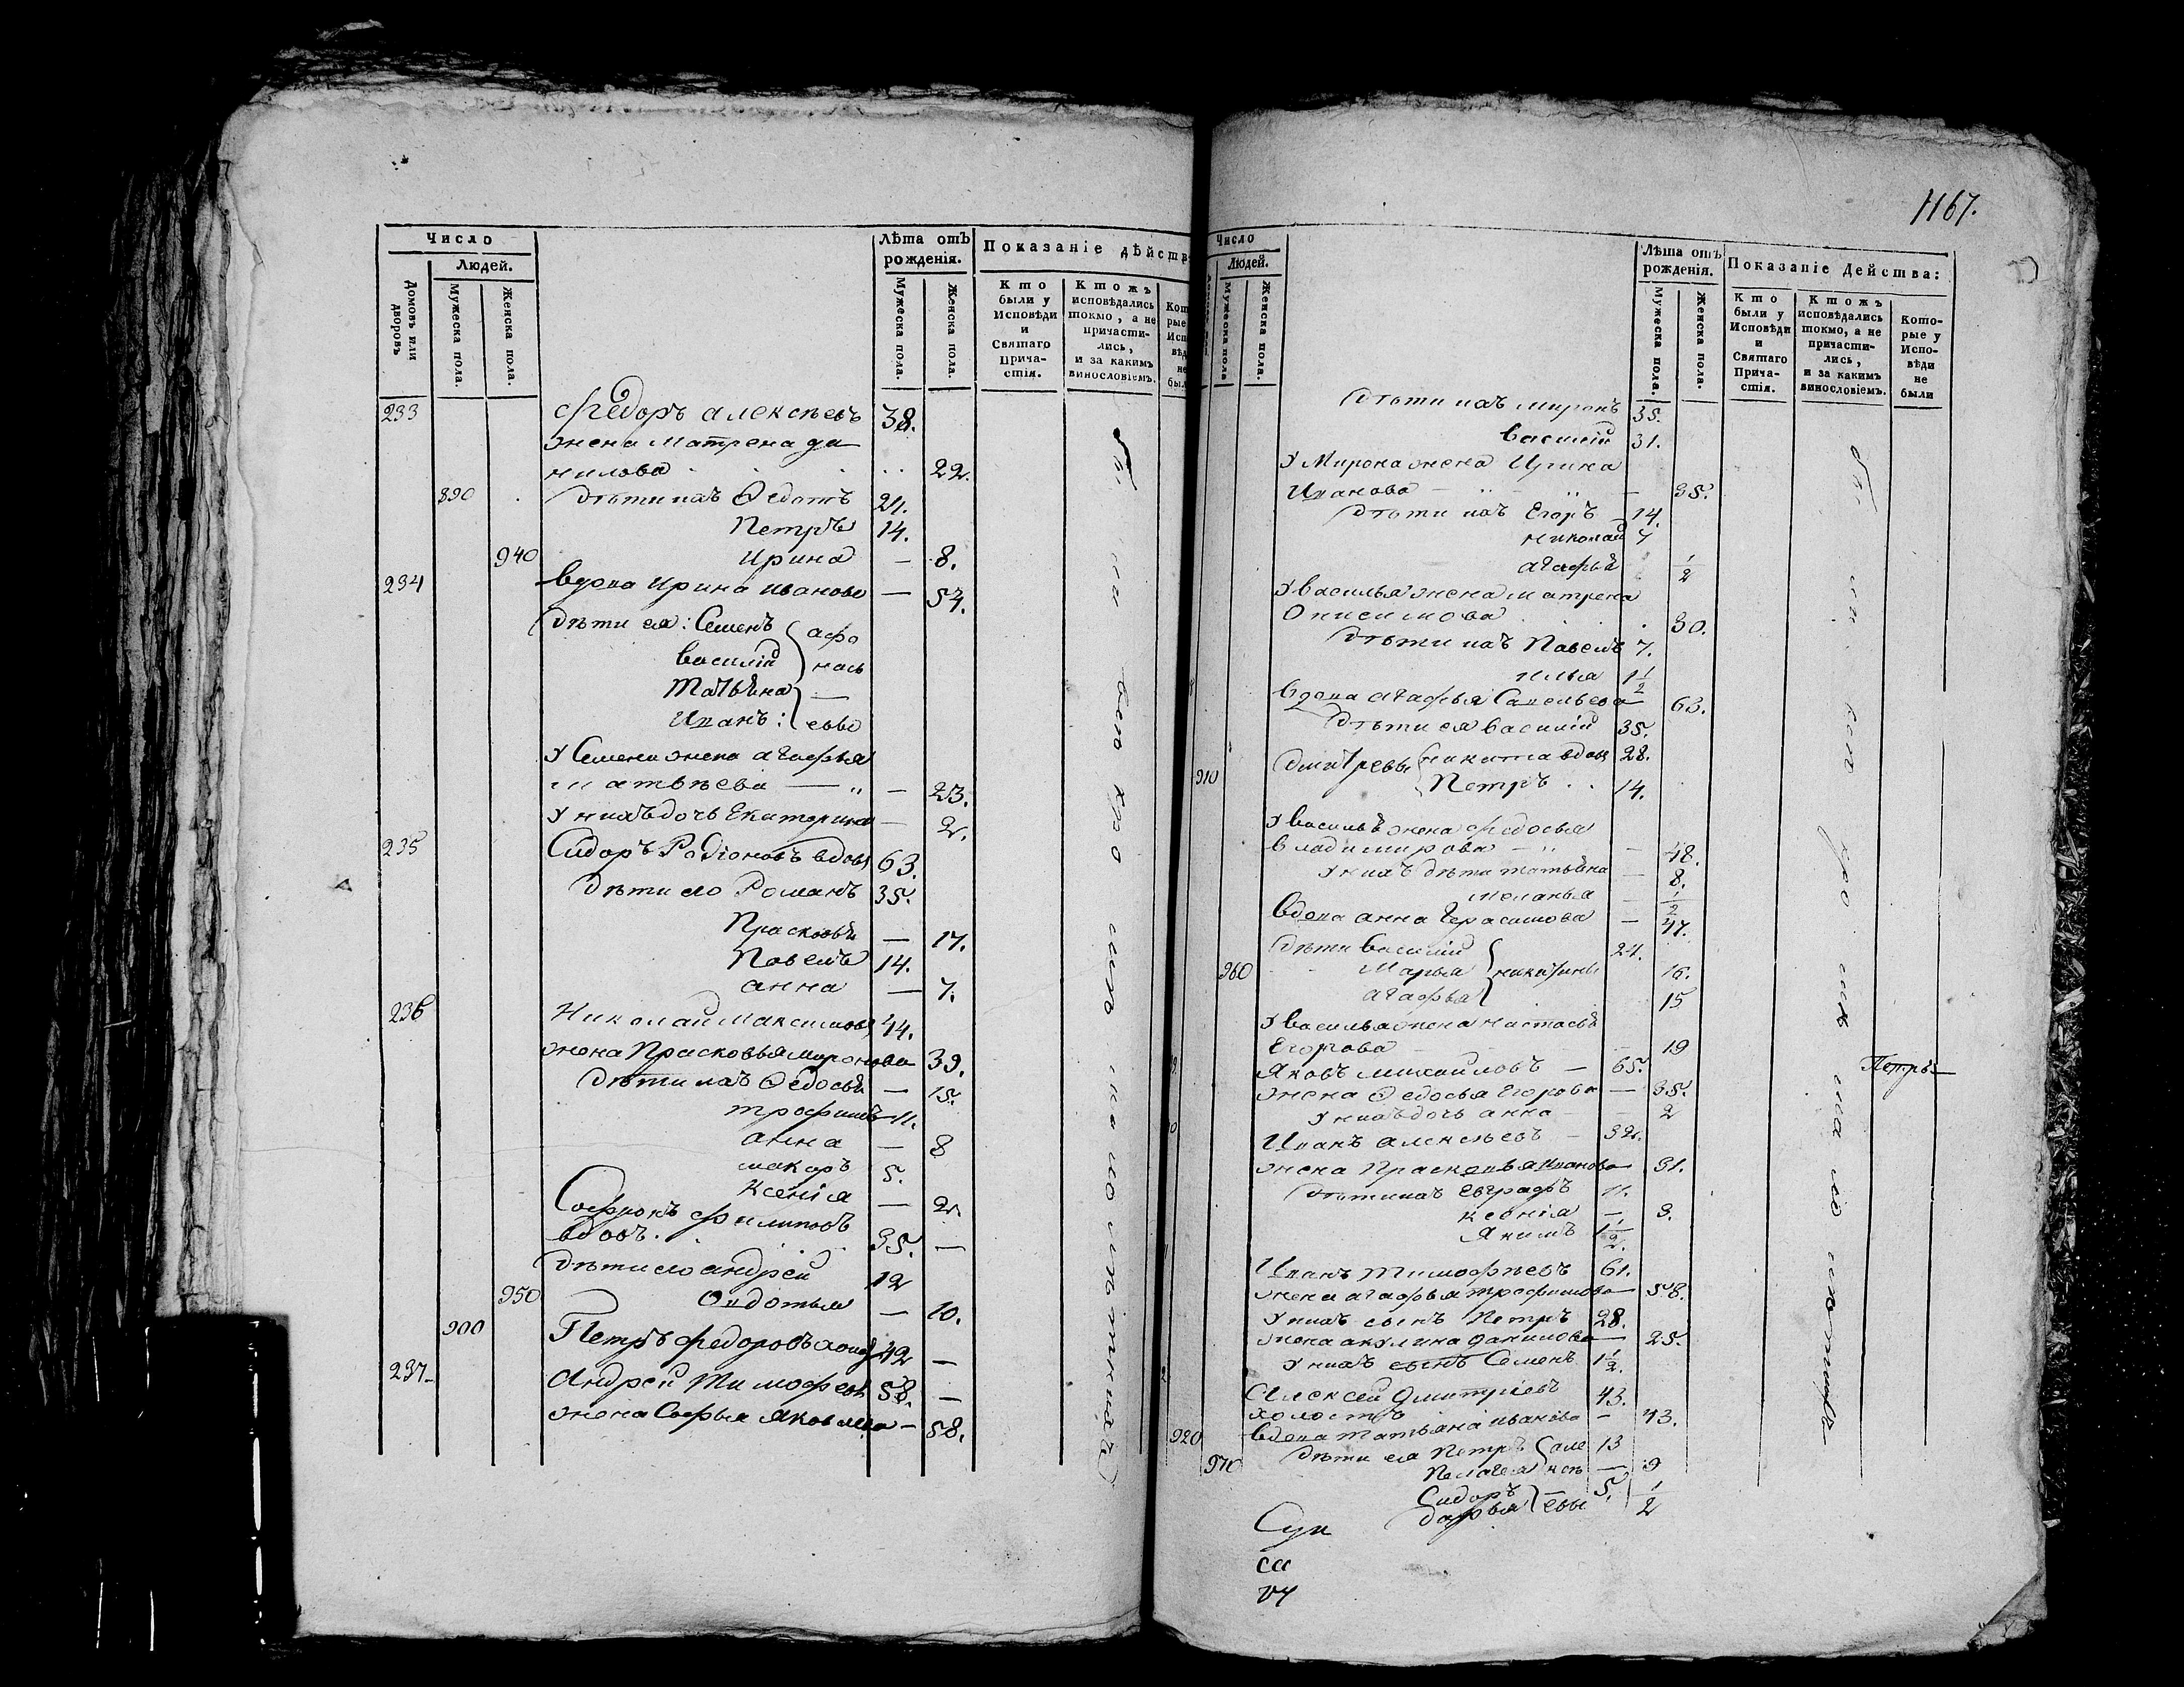 Число
Людей.
Домовъ или дворовъ
Мужеска пола.
Женска пола.
Лѣта отъ рожденія.
Мужеска пола.
Женска пола.
Показаніе дѣйств
Кто были у Исповѣди и Святаго Прича- стія.
Ктожъ исповѣдались токмо, а не причасти- лись, и за какимъ винословіемъ.
233 Федоръ алексѣевъ 38.
жена Матрена да
нилова 22.
890 Дѣти ихъ Федотъ 21.
Петръ 14.
940 Ирина — 8.
234 вдова Ирина Иванова — 54.
Дѣти ея: Семенъ афо
Василій нась
Татьяна —
Иванъ: евы
У Семена жена агафья
Матвѣева — 23.
У нихъ дочь Екатерина — 2.
235 Сидоръ Родіоновъ вдовъ 63.
Дѣти его Романъ 35.
Прасковья — 17.
Павелъ 14.
анна — 7.
236 Николай Максимовъ 44.
жена Прасковья миронова 39.
Дѣти ихъ Федосья — 15.
трофимъ 11.
анна — 8
макаръ 5.
Ксенія — 2.
Софронъ филиповъ
вдовъ. 35. —
Дѣти его андрей 12
950 Овдотья — 10.
900 Петръ федоровъ холос 42 —
237 Андрей Тимофеевъ 58. —
жена Софья яковлева — 58.
1167.
Число
Людей.
Мужеска пола
Женска пола.
Лѣта отъ рожденія.
Мужеска пола.
Женска пола.
Показаніе Дейсмва:
Кто были у Исповѣди и Святаго Прича- стія.
Ктожъ исповѣдались токмо, а не причасти- лись, и за какимъ винословіемъ.
Кото- рые у Испо- вѣди не были
Дѣти ихъ миронъ 35.
Василій 31.
У Мирона жена Ирина
Иванова — 35.
Дѣти ихъ Егоръ — 14.
николай 7
агафья 1/2
У василья жена матрена
Онисимова 30.
Дѣти ихъ Павелъ 7.
илья 1 1/2
вдова агафья Савельева 63.
Дѣти ея василій 35.
Дмитревы никита вдовъ 28.
910 Петръ . . 14.
У василья жена федосья
владимирова — 48.
У нихъ дѣти татьяна — 8.
меланья — 1/2
вдова анна Герасимова — 47.
Дѣти Василій 21.
960 Марья никитины 16.
агафья 15
У василья жена настасья
Егорова — 19
Яковъ михайловъ — 65.
жена Федосья Егорова — 35.
У нихъ дочь анна — 2
Иванъ алексѣевъ — 32.
жена Прасковья Иванова 31.
Дѣти ихъ евграфъ 11.
ксенія — 3.
Якимъ 1 1/2.
Иванъ Тимофѣевъ 61.
жена агафья трофимова — 58.
У нихъ сынъ Петръ 28.
жена акулина данилова — 25.
У нихъ сынъ Семенъ 1 1/2.
Алексей Дмитріевъ 43.
холостъ
920 вдова татьяна иванова — 43.
Дѣти ея Петръ але 13
970 Пелагея ксѣ — 9
Сидоръ — 5.
дарья евы 1/2